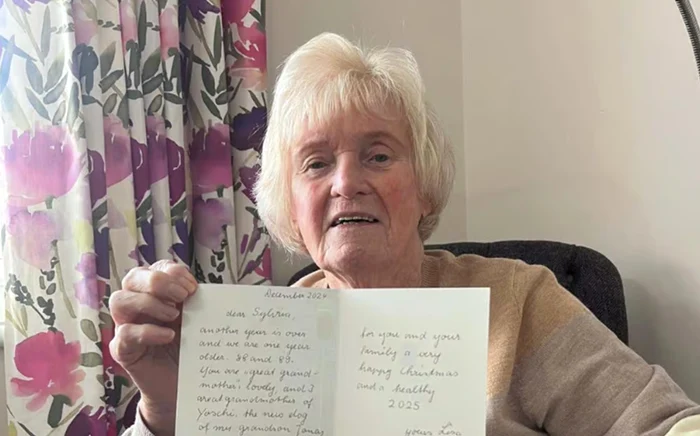 December 2024
dear Sylvia,
another year is over
and we are one year
older. 88 and 89.
You are "great grand-
mother" lovely, and I
great grandmother of
Yoschi, the new dog
of my grandson Jonas
for you and your
family a very
happy Christmas
and a healthy
2025
yours